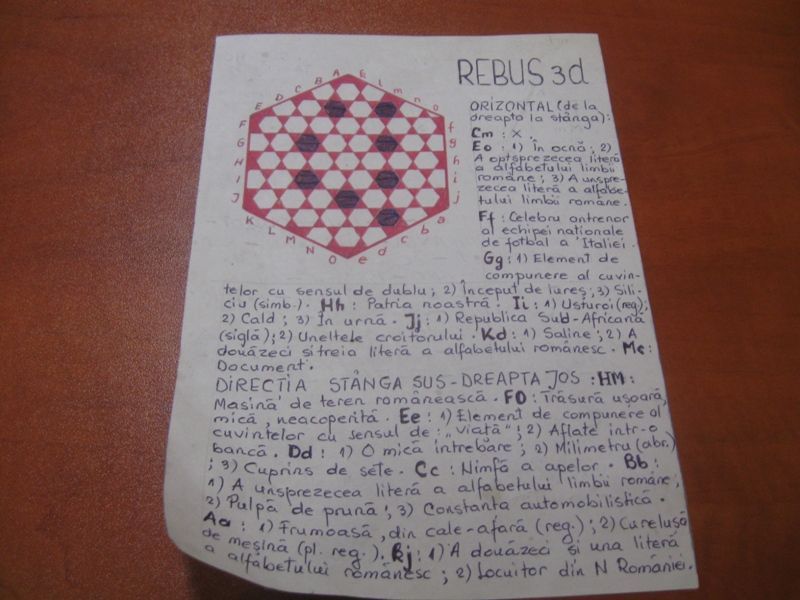 REBUS 3d
A B C D E F G H I J K L M N O
E l m n o f g h i j a b c d e
ORIZONTAL (de la
dreapta la stânga):
Cm : X .
Eo : 1) În ocnă ; 2)
A optsprezecea literă
a alfabetului limbii
române ; 3) A unspre-
zecea literă a alfabe-
tului limbii române .
Ff : Celebru antrenor
al echipei naționale
de fotbal a Italiei .
Gg : 1) Element de
compunere al cuvin-
telor cu sensul de dublu ; 2) Început de iureș ; 3) Sili-
ciu (simb.) . Hh : Patria noastră . Ii : 1) Usturoi (reg);
2) Cald ; 3) În urnă . Jj : 1) Republica Sud-Africană
(siglă) ; 2) Uneltele croitorului . Kd : 1) Saline ; 2) A
douăzeci și treia literă a alfabetului românesc . Mc :
Document .
DIRECȚIA STÂNGA SUS-DREAPTA JOS : HM :
Mașină de teren românească . FO : Trăsură ușoară,
mică , neacoperită . Ee : 1) Element de compunere al
cuvintelor cu sensul de : „viață" ; 2) Aflate într-o
bancă . Dd : 1) O mică întrebare ; 2) Milimetru (abr.)
; 3) Cuprins de sete . Cc : Nimfă a apelor . Bb :
1) A unsprezecea literă a alfabetului limbii române ;
2) Pulpă de prună ; 3) Constanța automobilistică .
Aa : 1) Frumoasă , din cale-afară (reg.) ; 2) Curelușă
de meșină (pl. reg.) . Rj : 1) A douăzeci și una literă
a alfabetului românesc ; 2) Locuitor din N României .